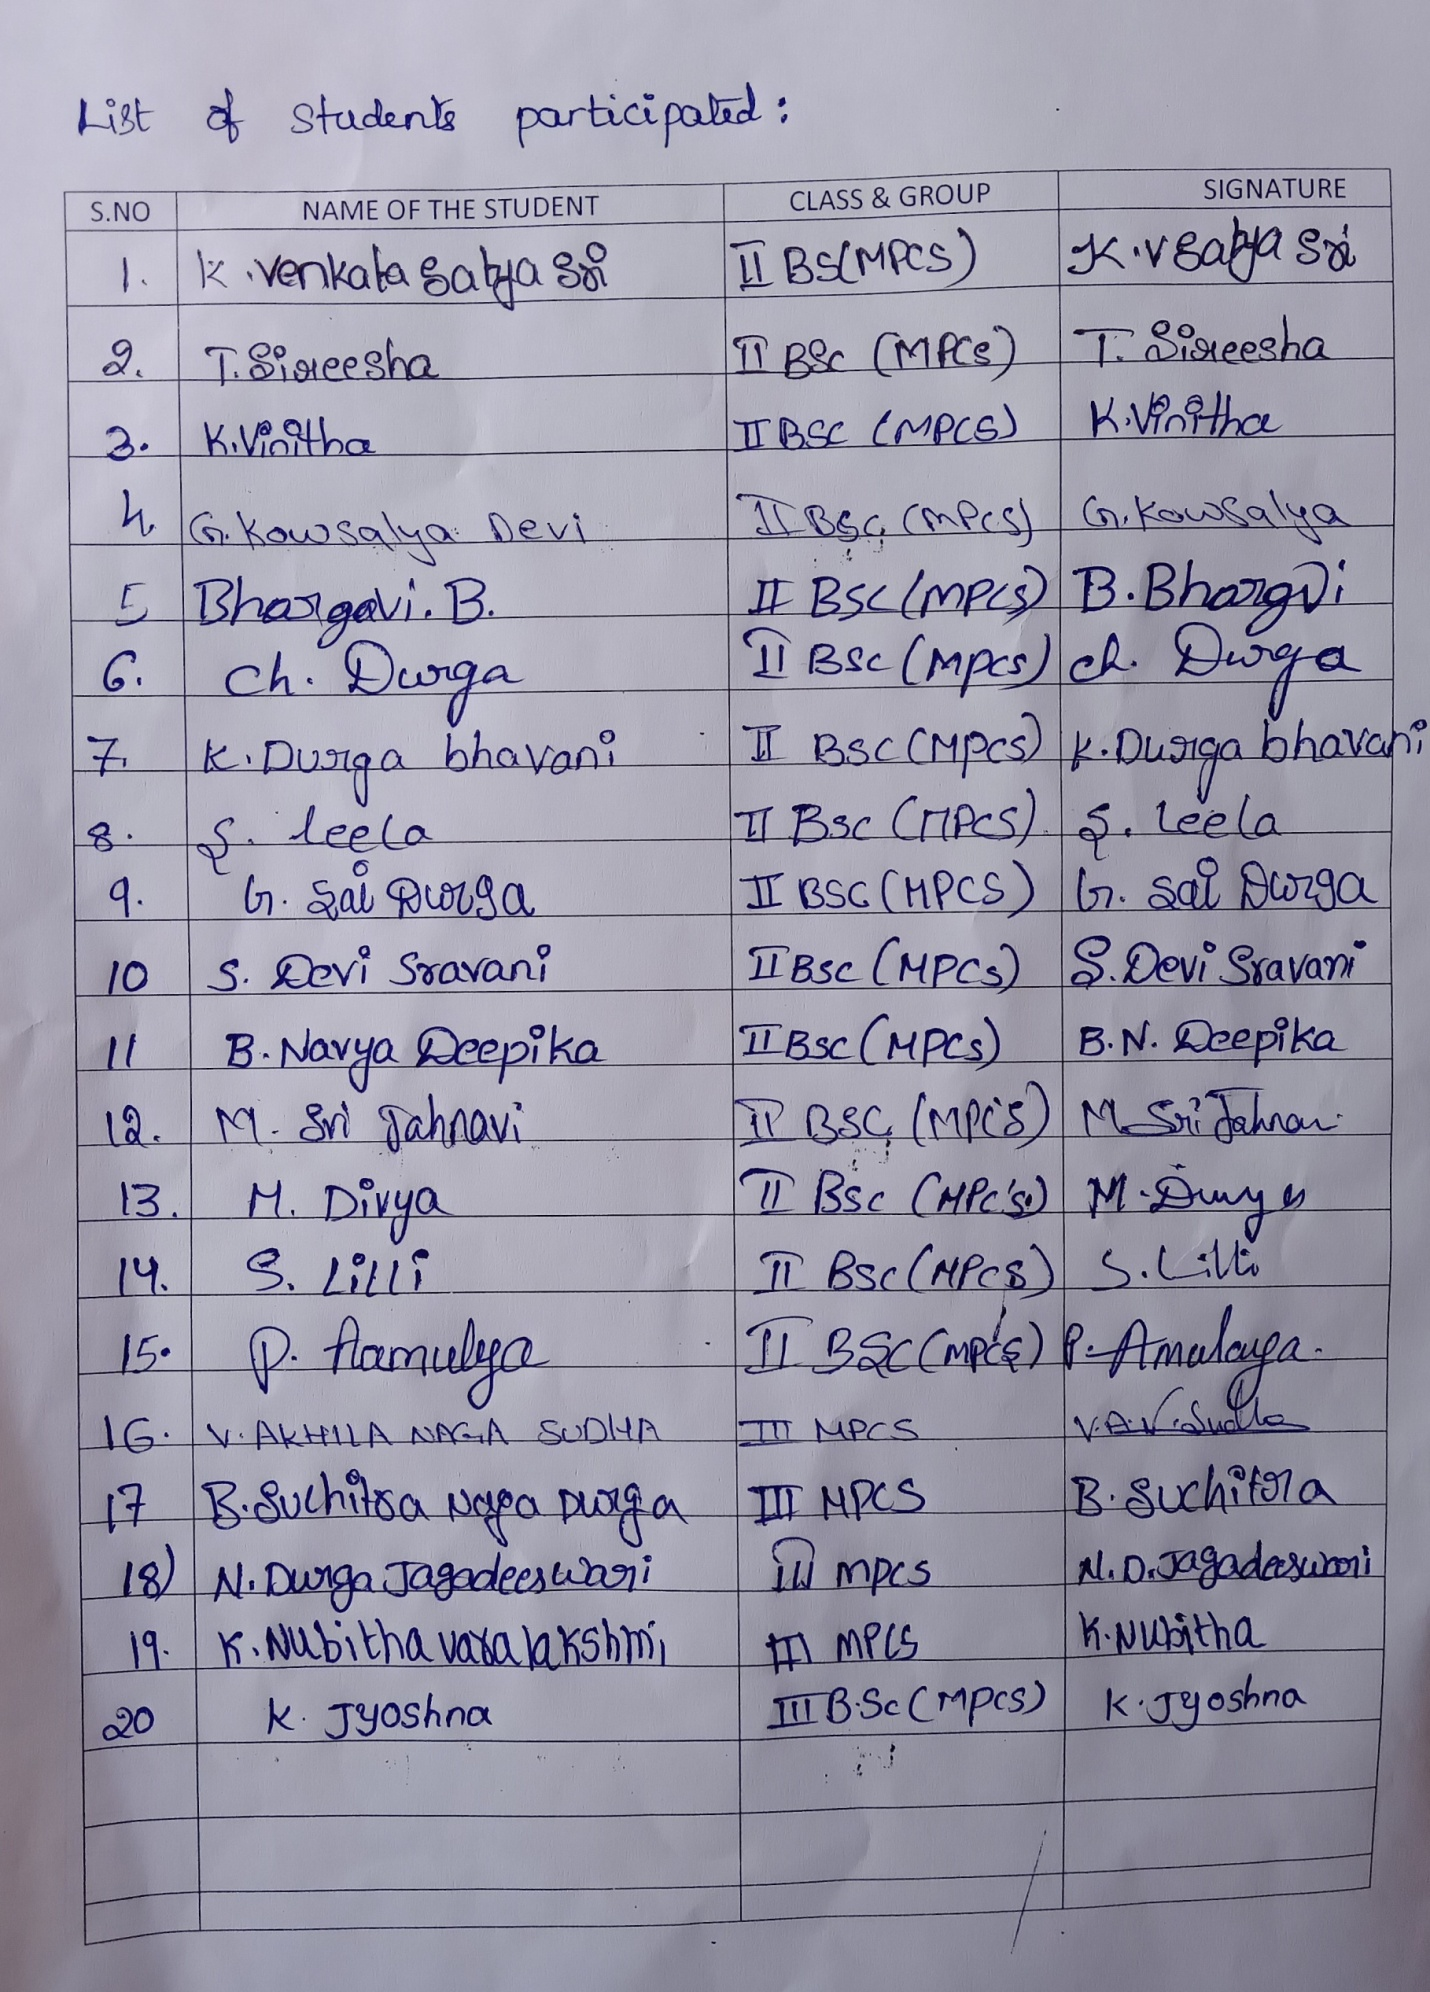 List of students participated:
S.NO NAME OF THE STUDENT CLASS & GROUP SIGNATURE
1. K.Venkata Satya Sri II BS(MPCS) K.V Satya Sri
2. T.Sireesha II BSc (MPCs) T. Sireesha
3. K.Vinitha II BSC (MPCS) K.Vinitha
4. G.Kowsalya Devi II BSC (MPCS) G.Kowsalya
5 Bhargavi.B. II BSC (MPCS) B.Bhargvi
6. Ch. Durga II BSC (MPCS) ch. Durga
7. K.Durga bhavani II BSC (MPCS) K.Durga bhavani
8. S. leela II BSC (MPCS). S. leela
9. G. Sai Durga II BSC (MPCS) G. Sai Durga
10 S. Devi Sravani II BSC (MPCS) S.Devi Sravani
11 B.Navya Deepika II BSC (MPCS) B.N. Deepika
12. M. Sri Jahnavi II BSC (MPC'S) M. Sri Jahnavi
13. M. Divya II BSC (MPC's.) M. Divya
14. S. Lilli II BSC (MPCS) S. Lilli
15. P. Aamulya II BSC (MPC's) P. Amulaya.
16. V. AKHILA NAGA SUDHA III MPCS V.A.N.Sudha
17 B.Suchitra Naga Durga III MPCS B. Suchitra
18) N.Durga Jagadeeswari III MPCS N.D.Jagadeeswari
19. K.Nubitha varalakshmi III MPCS K.Nubitha
20 K. Jyoshna III B.Sc (MPCS) K. Jyoshna